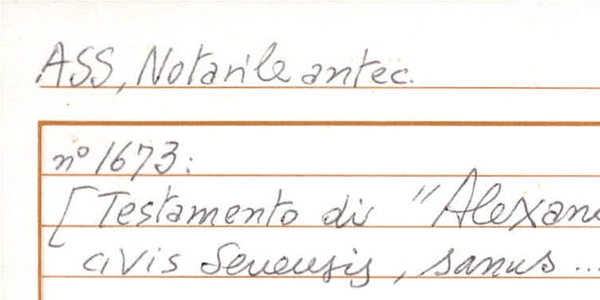 ASS, Notarile antec.
n° 1673:
[Testamento di "Alexan
civis Senensis, sanus...